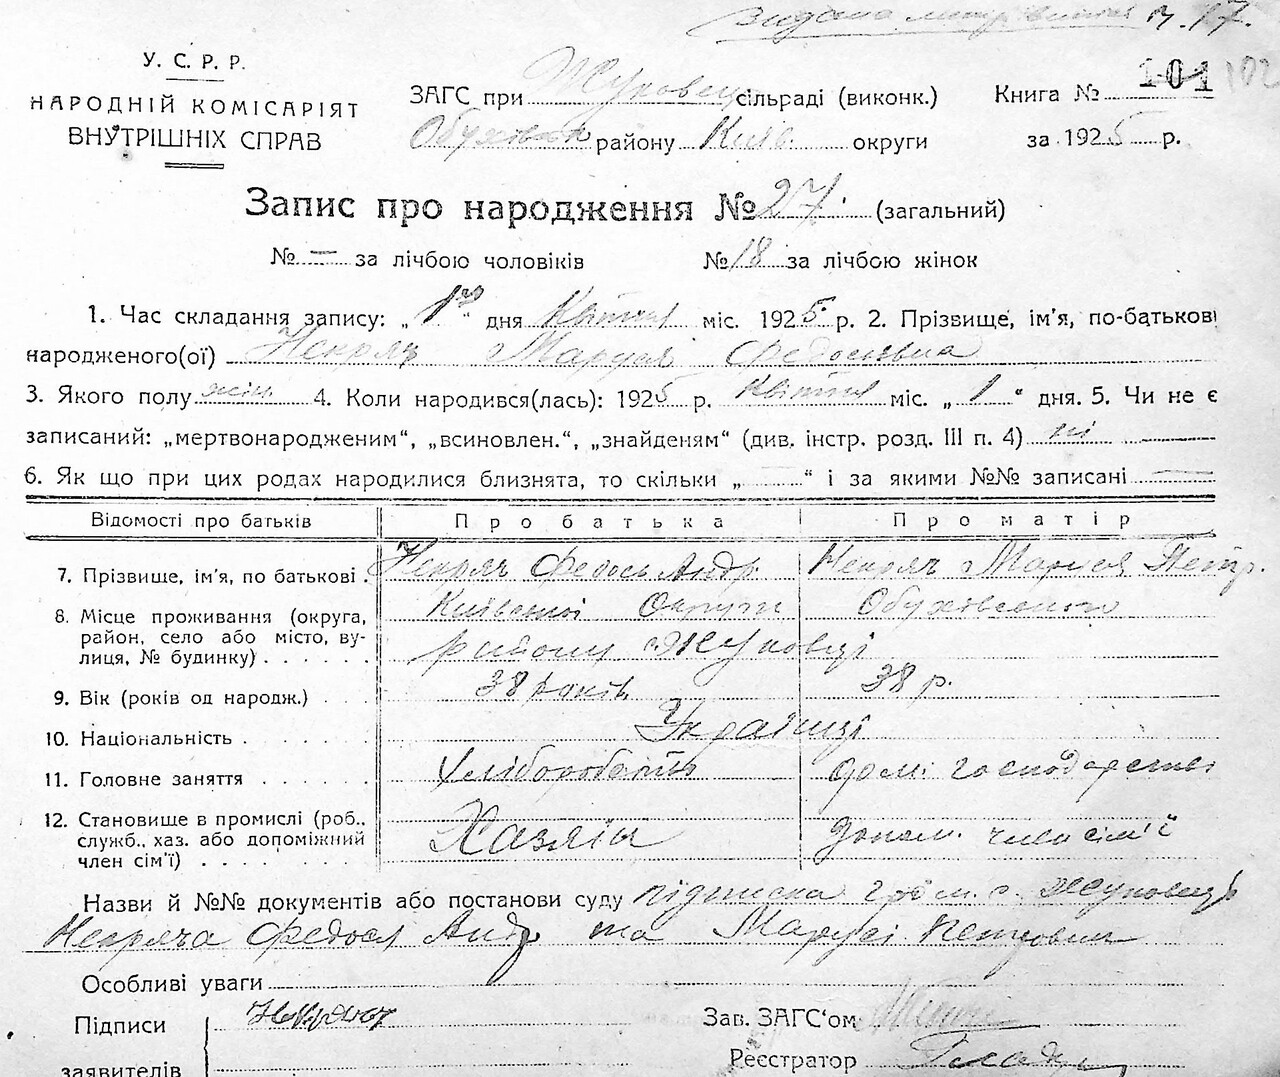 У. С. Р. Р.
НАРОДНІЙ КОМІСАРІЯТ
ВНУТРІШНІХ СПРАВ
ЗАГС при Жуковец сільраді (виконк.) Книга № 101 102
Обухівськ району Київ. округи за 1925 р.
Запис про народження № 27. (загальний)
№ — за лічбою чоловіків № 18 за лічбою жінок
1. Час складання запису: „1го" дня Квітня міс. 1925 р. 2. Прізвище, ім'я, по-батькові
народженого(ої) Некряч Маруся Федосіївна
3. Якого полу жін. 4. Коли народився(лась): 1925 р. Квітня міс. „1" дня. 5. Чи не є
записаний: „мертвонародженим", „всиновлен.", „знайденям" (див. інстр. розд. III п. 4) ні
6. Як що при цих родах народилися близнята, то скільки „ — " і за якими №№ записані —
Відомості про батьків Про батька Про матір
7. Прізвище, ім'я, по батькові . Некряч Федось Андр Некряч Маруся Петр.
8. Місце проживання (округа, район, село або місто, вулиця, № будинку) . . . . . Київської Округи Обухівського
району Жуковці
9. Вік (років од народж.) . . . 38 років 38 р.
10. Національність . . . . . . . Українці
11. Головне заняття . . . . . . Хліборобств дом. господарстві
12. Становище в промислі (роб., служб., хаз. або допоміжний член сім'ї) . . . . . . . . . Хазяїн допом. член сім'ї
Назви й №№ документів або постанови суду підписка гром. с. Жуковець
Некряча Федося Андр та Марусі Петровни
Особливі уваги
Підписи Зав. ЗАГС'ом
заявителів Реєстратор